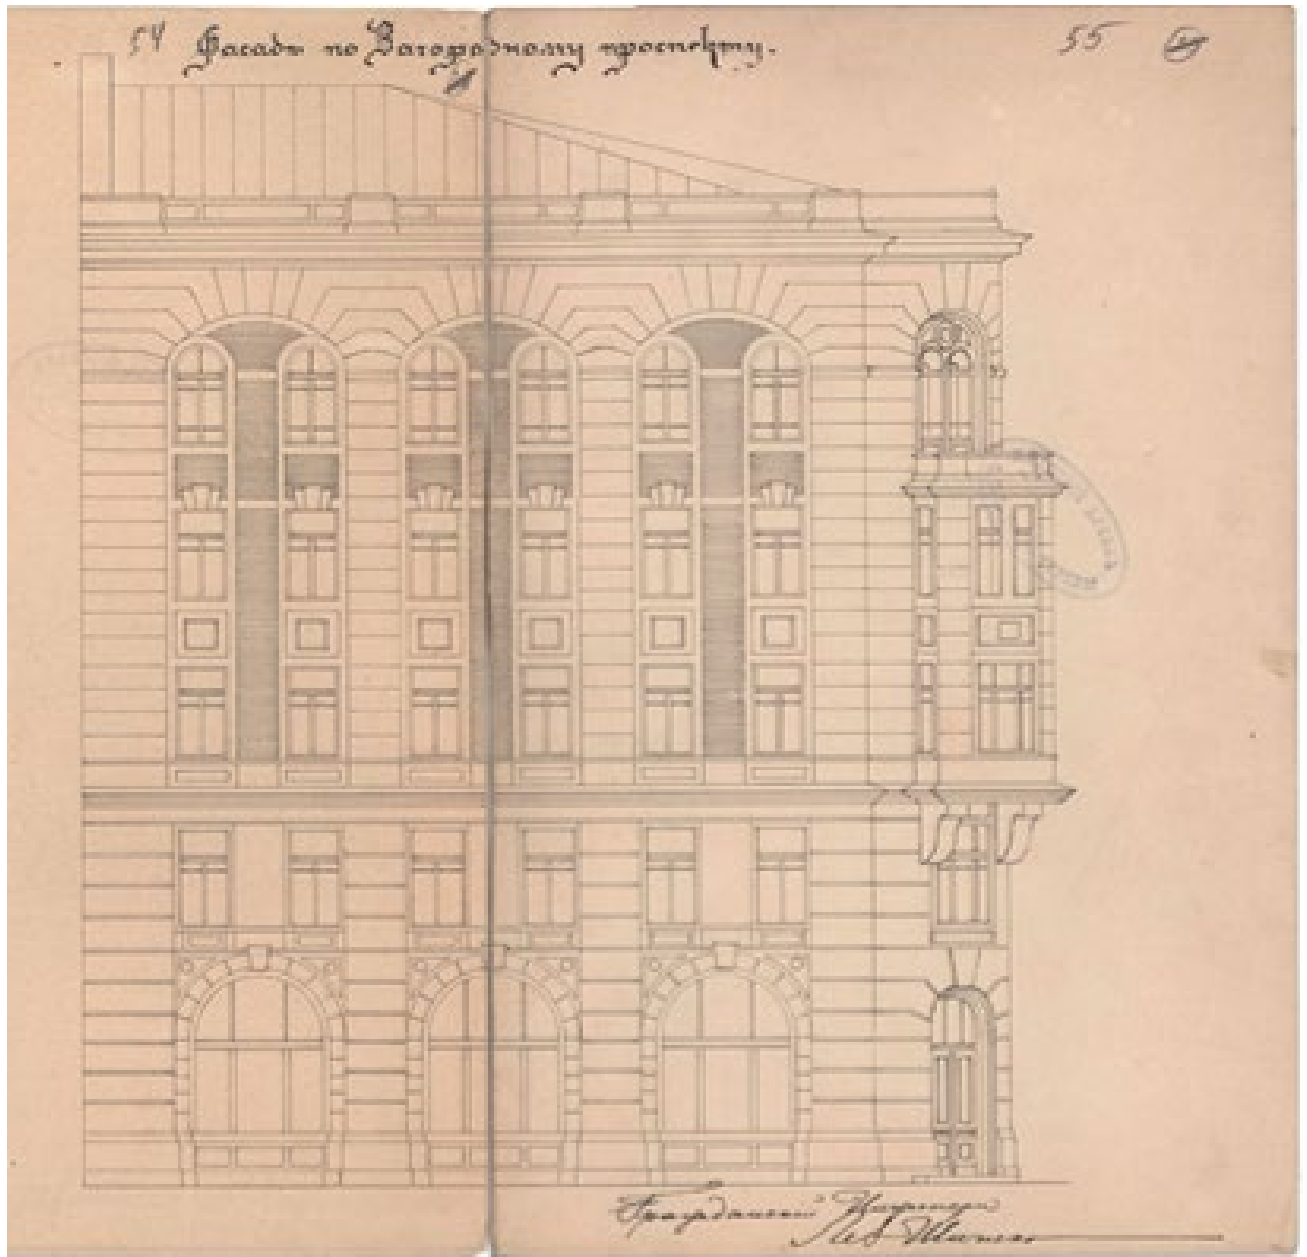 54 Фасадъ по Загородному проспекту. 55
Гражданскій Инженеръ
Лев